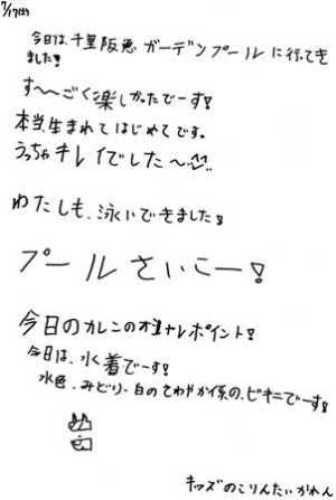 7/17(土)
今日は、千里阪急ガーデンプールに行ってき
ました!
す〜〜ごく楽しかったでーす!
本当、生まれてはじめてです。
うっちゃキレイでした〜
わたしも、泳いできました!
プールさいこー!
今日のカレンのオシャレポイント!
今日は、水着でーす!
水色、みどり、白のさわやか係の、ビキニでーす!
キッズのこりんたいかれん